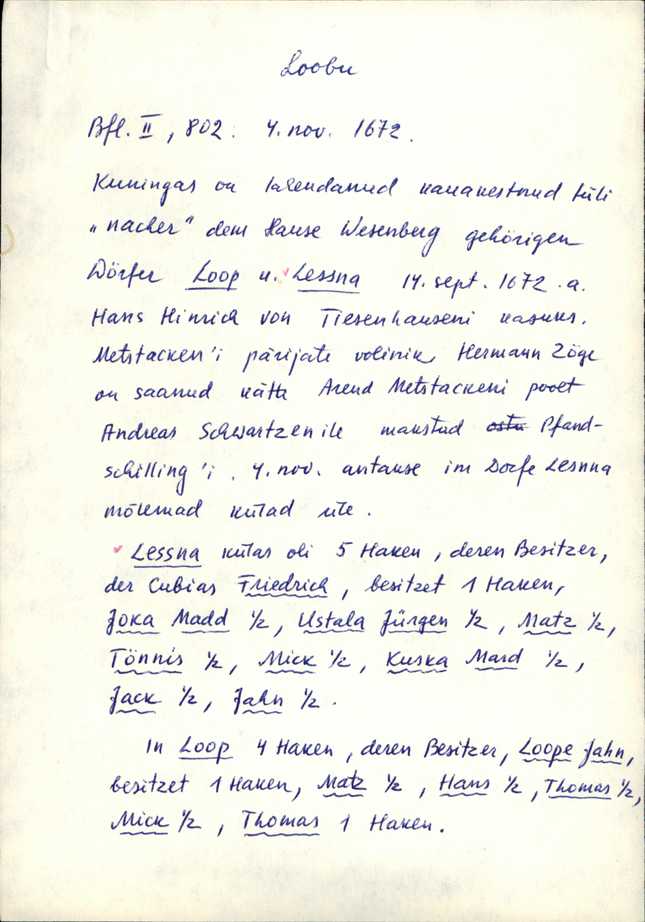 Loobu
Bfl. II, 802. 4. nov. 1672.
Kuningas on lahendanud kauakestnud tüli
„nacher" dem Hause Wesenberg gehörigen
Dörfer Loop u. Lessna 14. sept. 1672. a.
Hans Hinrich von Tiesenhauseni kasuks.
Metstacken'i pärijate volinik Hermann Zöge
on saanud kätte Arend Metstackeni poolt
Andreas Schwartzenile makstud ostu Pfand-
schilling'i. 4. nov. antakse im Dorfe Lesnna
mõlemad külad üle.
Lessna külas oli 5 Haken, deren Besitzer,
der Cubias Friedrich, besitzet 1 Haken,
Joka Madd 1/2, Ustala Jürgen 1/2, Matz 1/2,
Tönnis 1/2, Mick 1/2, Kuska Mard 1/2,
Jack 1/2, Jahn 1/2.
In Loop 4 Haken, deren Besitzer, Loope Jahn,
besitzet 1 Haken, Matz 1/2, Hans 1/2, Thomas 1/2,
Mick 1/2, Thomas 1 Haken.